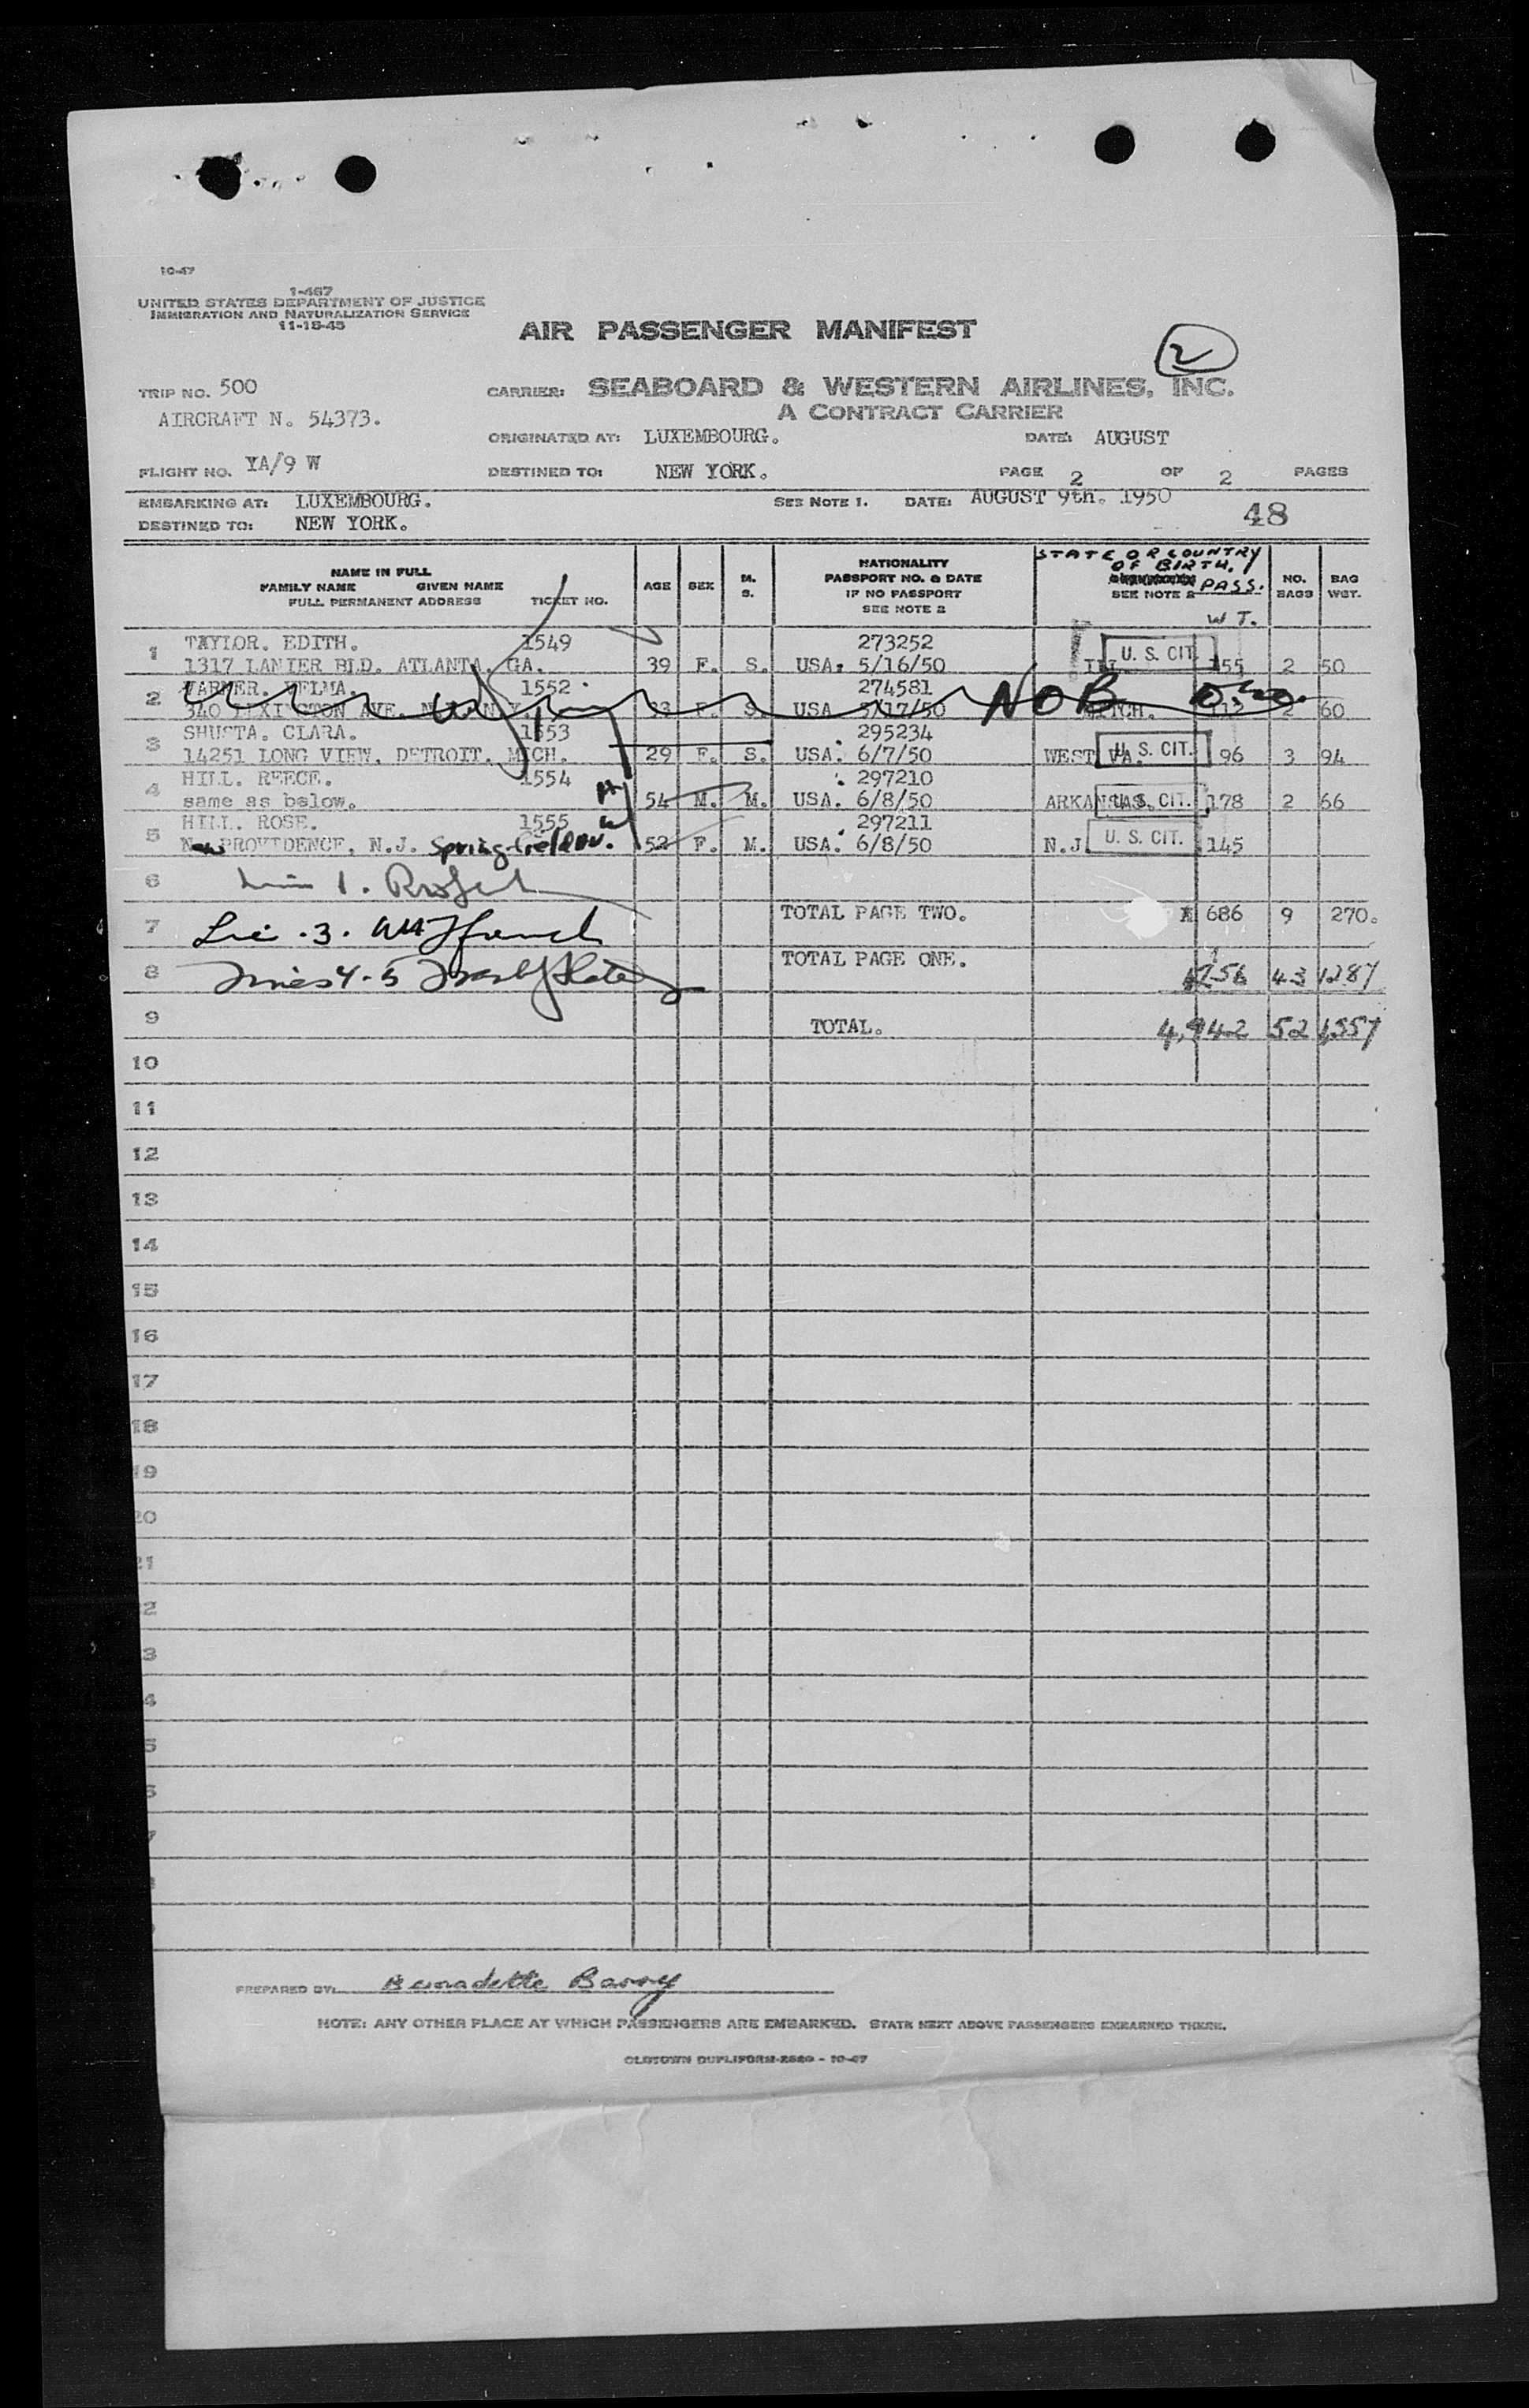 10-47
1-467
UNITED STATES DEPARTMENT OF JUSTICE
IMMIGRATION AND NATURALIZATION SERVICE
11-15-45
AIR PASSENGER MANIFEST
2
TRIP NO. 500
CARRIER: SEABOARD & WESTERN AIRLINES, INC.
AIRCRAFT N. 54373.
A CONTRACT CARRIER
ORIGINATED AT: LUXEMBOURG. DATE: AUGUST
FLIGHT NO. YA/9 W DESTINED TO: NEW YORK. PAGE 2 OF 2 PAGES
EMBARKING AT: LUXEMBOURG. SEE NOTE 1. DATE: AUGUST 9th. 1950
DESTINED TO: NEW YORK. 48
NAME IN FULL
FAMILY NAME GIVEN NAME
FULL PERMANENT ADDRESS TICKET NO.
AGE SEX M. S.
NATIONALITY
PASSPORT NO. & DATE
IF NO PASSPORT
SEE NOTE 2
STATE OR COUNTRY
OF BIRTH.
SEE NOTE 2 PASS.
WT.
NO. BAGS
BAG WGT.
1 TAYLOR. EDITH. 1549 273252
1317 LANIER BLD. ATLANTA. GA. 39 F. S. USA. 5/16/50 U. S. CIT. 155 2 50
2 VELMA. 1552 274581
340 LEXINGTON AVE. 33 F. S. USA 5/17/50 MICH. NOB 2 60
3 SHUSTA. CLARA. 1553 295234
14251 LONG VIEW. DETROIT. MICH. 29 F. S. USA. 6/7/50 WEST VA. U. S. CIT. 96 3 94
4 HILL. REECE. 1554 297210
same as below. 54 M. M. USA. 6/8/50 ARKANSAS. U. S. CIT. 178 2 66
5 HILL. ROSE. 1555 297211
New PROVIDENCE, N.J. Springfield Av. 52 F. M. USA. 6/8/50 N.J. U. S. CIT. 145
6
7 TOTAL PAGE TWO. 686 9 270.
8 TOTAL PAGE ONE. 4256 43 1287
9 TOTAL. 4,942 52 1,557
10
11
12
13
14
15
16
17
18
19
20
21
2
3
4
5
6
7
PREPARED BY: Bernadette Barry
NOTE: ANY OTHER PLACE AT WHICH PASSENGERS ARE EMBARKED. STATE NEXT ABOVE PASSENGERS EMBARKED THERE.
OLDTOWN DUPLIFORM-2520 - 10-47